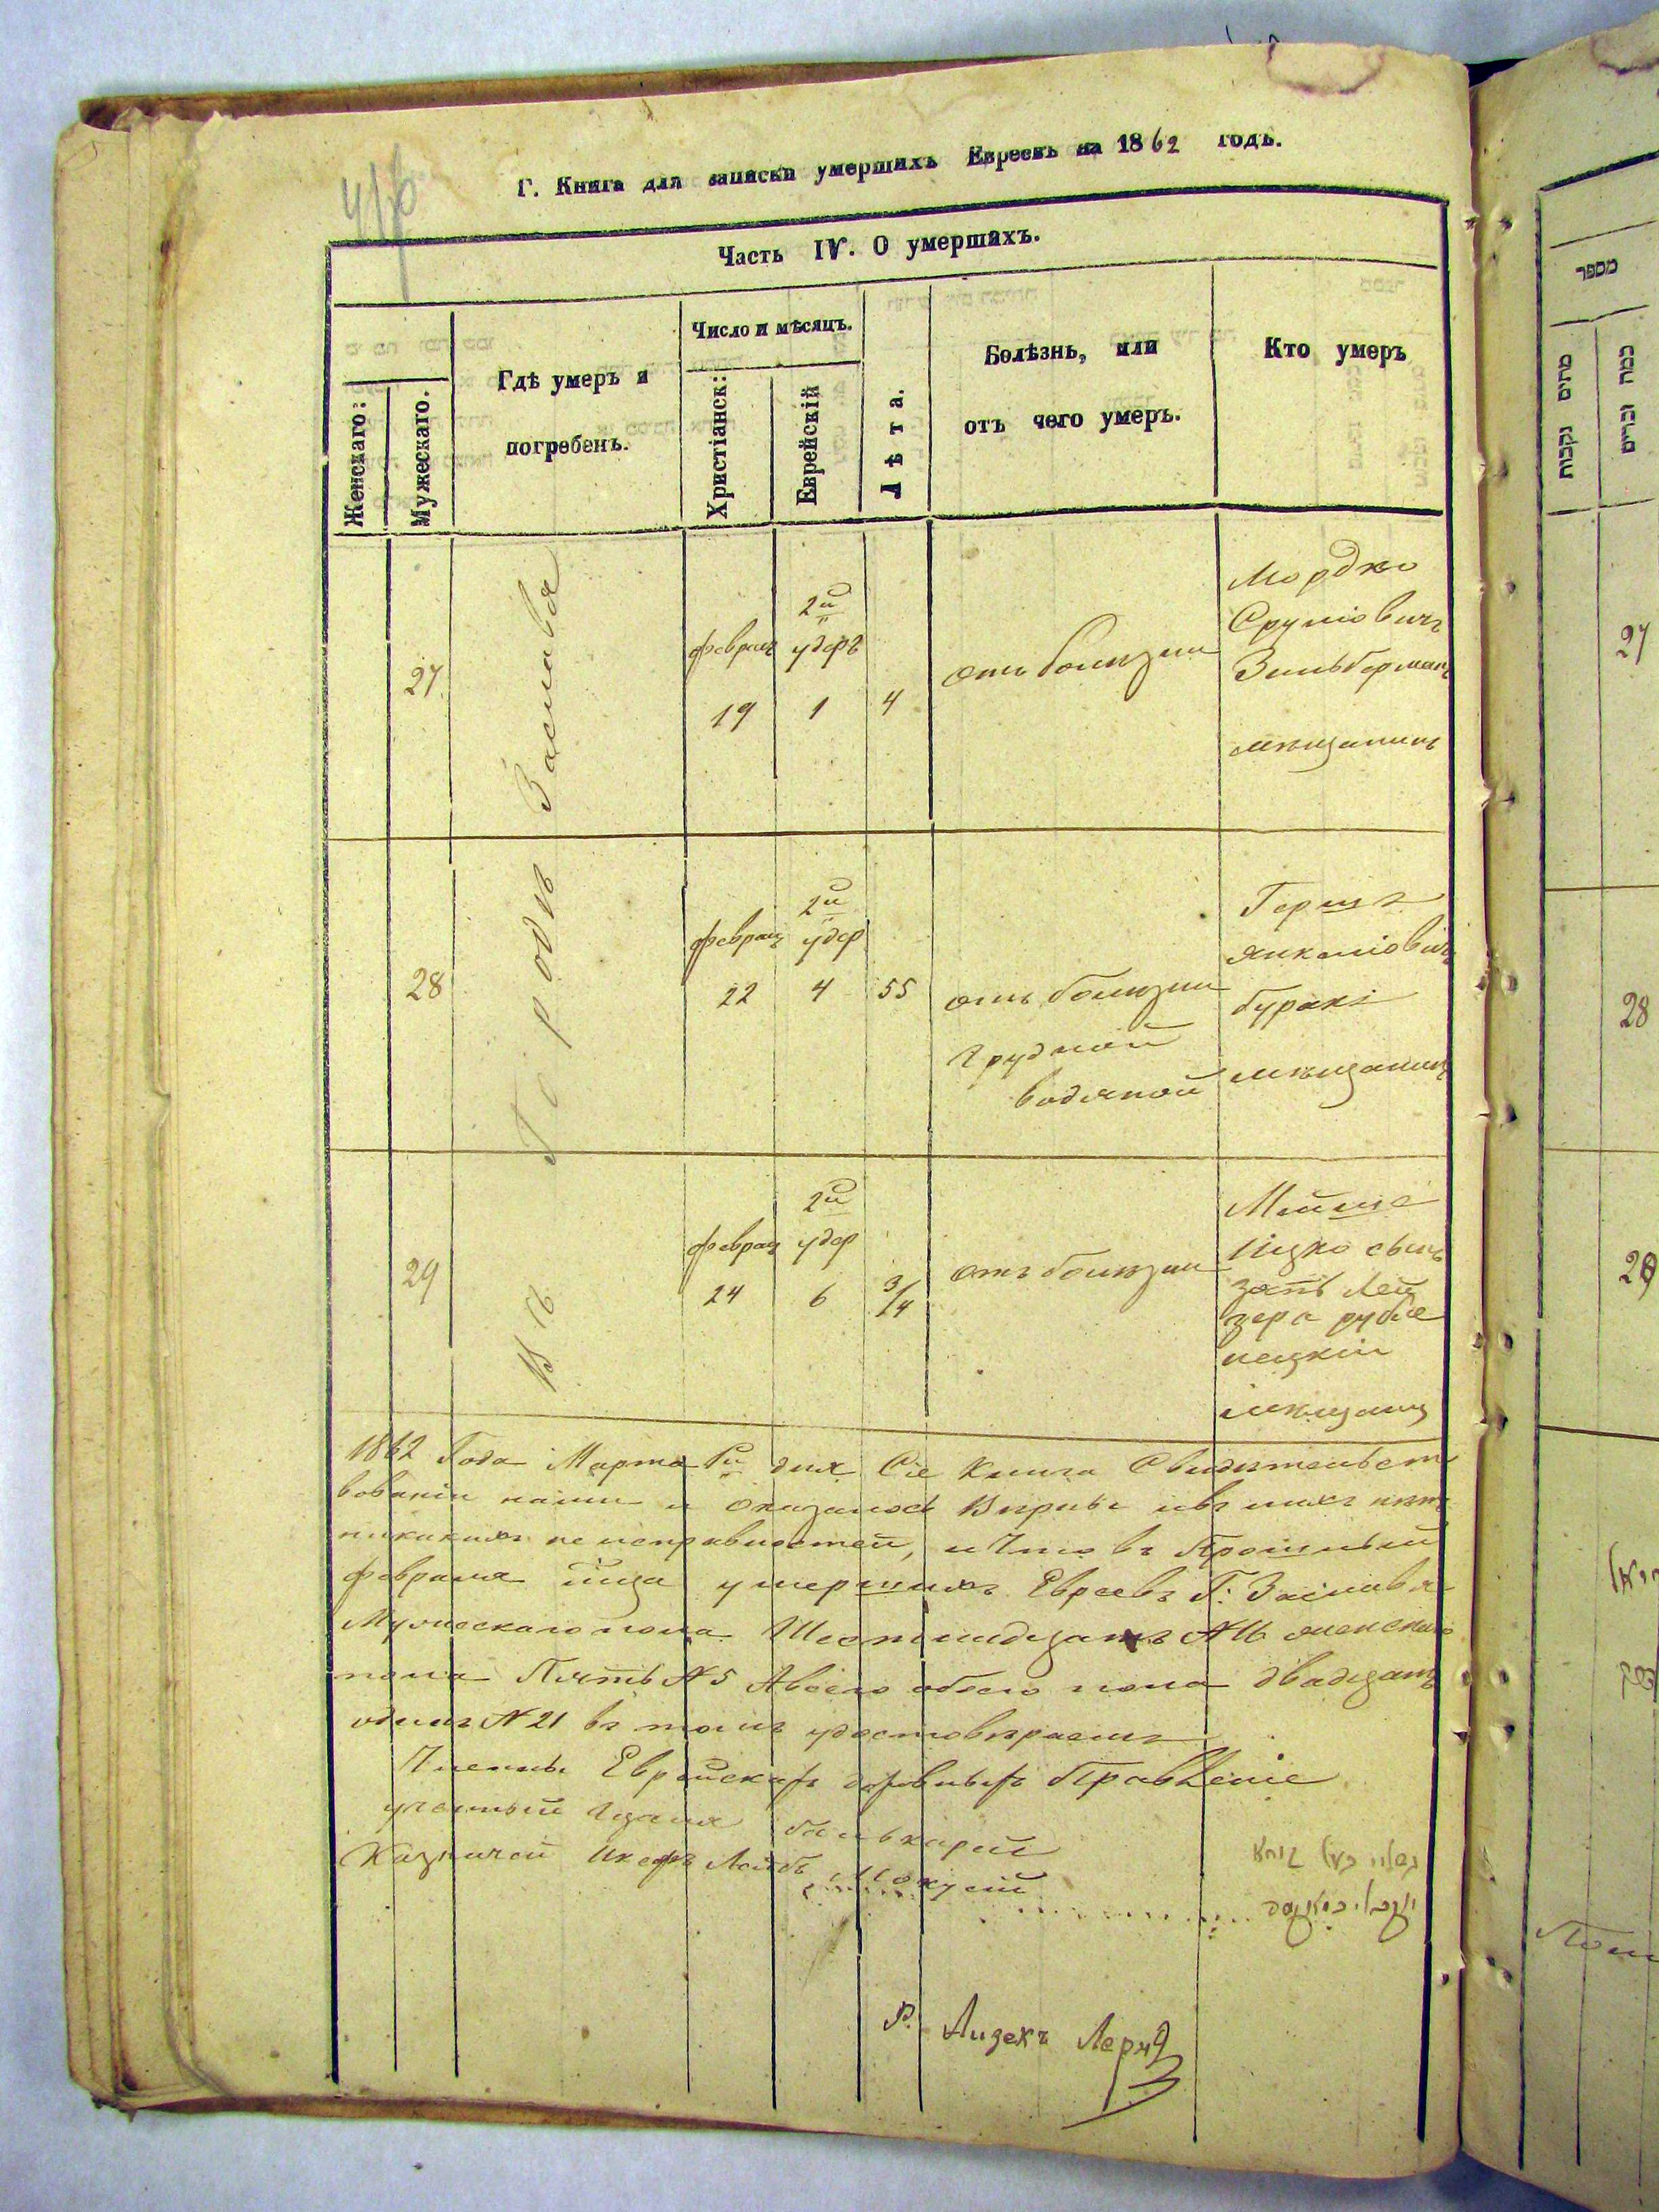 Г. Книга для записки умершихъ Евреевъ на 1862 годъ.
Часть IV. О умершихъ.
Женскаго:
Мужескаго.
Гдѣ умеръ и
погребенъ.
Число и мѣсяцъ.
Христіанск:
Еврейскій
Лѣта.
Болѣзнь, или
отъ чего умеръ.
Кто умеръ
Въ Городѣ Заславѣ
27
феврал
19
2й
удеръ
1
4
отъ болизни
Мордко
Сруліовичъ
Зильберманъ
мѣщанинъ
28
феврал
22
2й
удер
4
55
отъ болизни
грудной
водяной
Гершъ
Янкеліовичъ
бураkъ
мѣщанинъ
29
феврал
24
2й
удер
6
3/4
отъ болизни
Мойше
Ицко сынъ
зять Лей
зера
мѣщани
1862 Года Марта 1й дня Сіе Книга Свидѣтельст
вованіи нами и оказалось Вѣрны ивъ нихъ нѣтъ
никакихъ не исправностей, и что въ Прошлый
февраля умершихъ Евреевъ Г. Заслава
Мужескаго пола Шестнадцать №16 женскаго
пола Пять №5 Авсего обоего пола двадцать
одинъ №21 въ томъ удостовѣряемъ
Члены Еврейскаго Правленіе
ученный
Казначей Лейбъ
Р. Айзекъ Лернъ
מספר
מתים נקבות
כמה זכרים
27
28
29